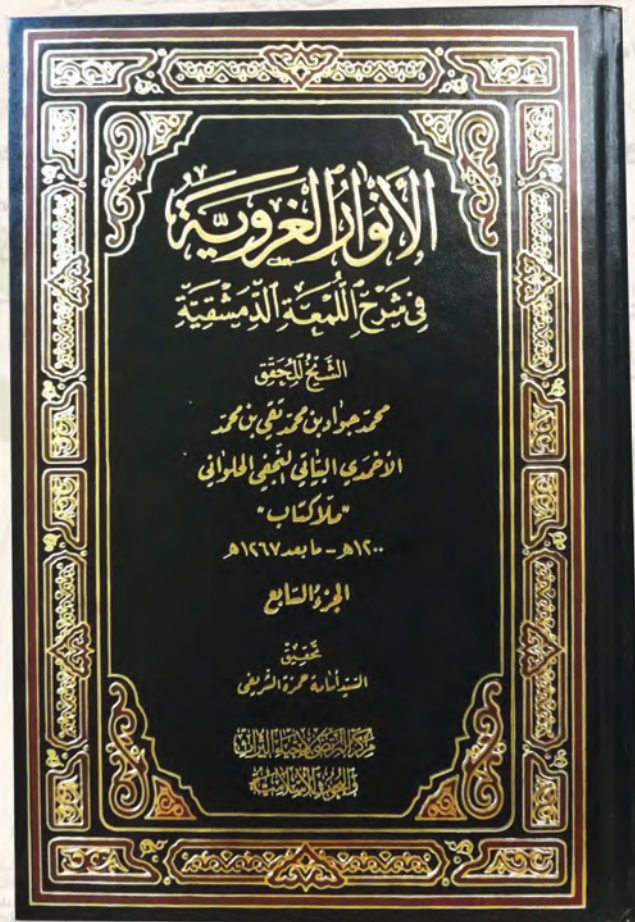 الأَنْوَارُ الْغَرَوِيَّةُ
فِي شَرْحِ اللُّمْعَةِ الدِّمَشْقِيَّةِ
الشَّيْخُ المُحَقِّق
محمّد جواد بن محمّد تقي بن محمّد
الأحمدي البيّاتي النّجفي الحلواني
"ملّا كتاب"
١٢٠٠هـ - ما بعد ١٢٦٧هـ
الجزء السّابع
تحقيق
السيّد أسامة حمزة الشريفي
مركز المرتضى لإحياء التراث
والبحوث الإسلامية